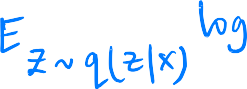 E_{z∼q(z|x)} log